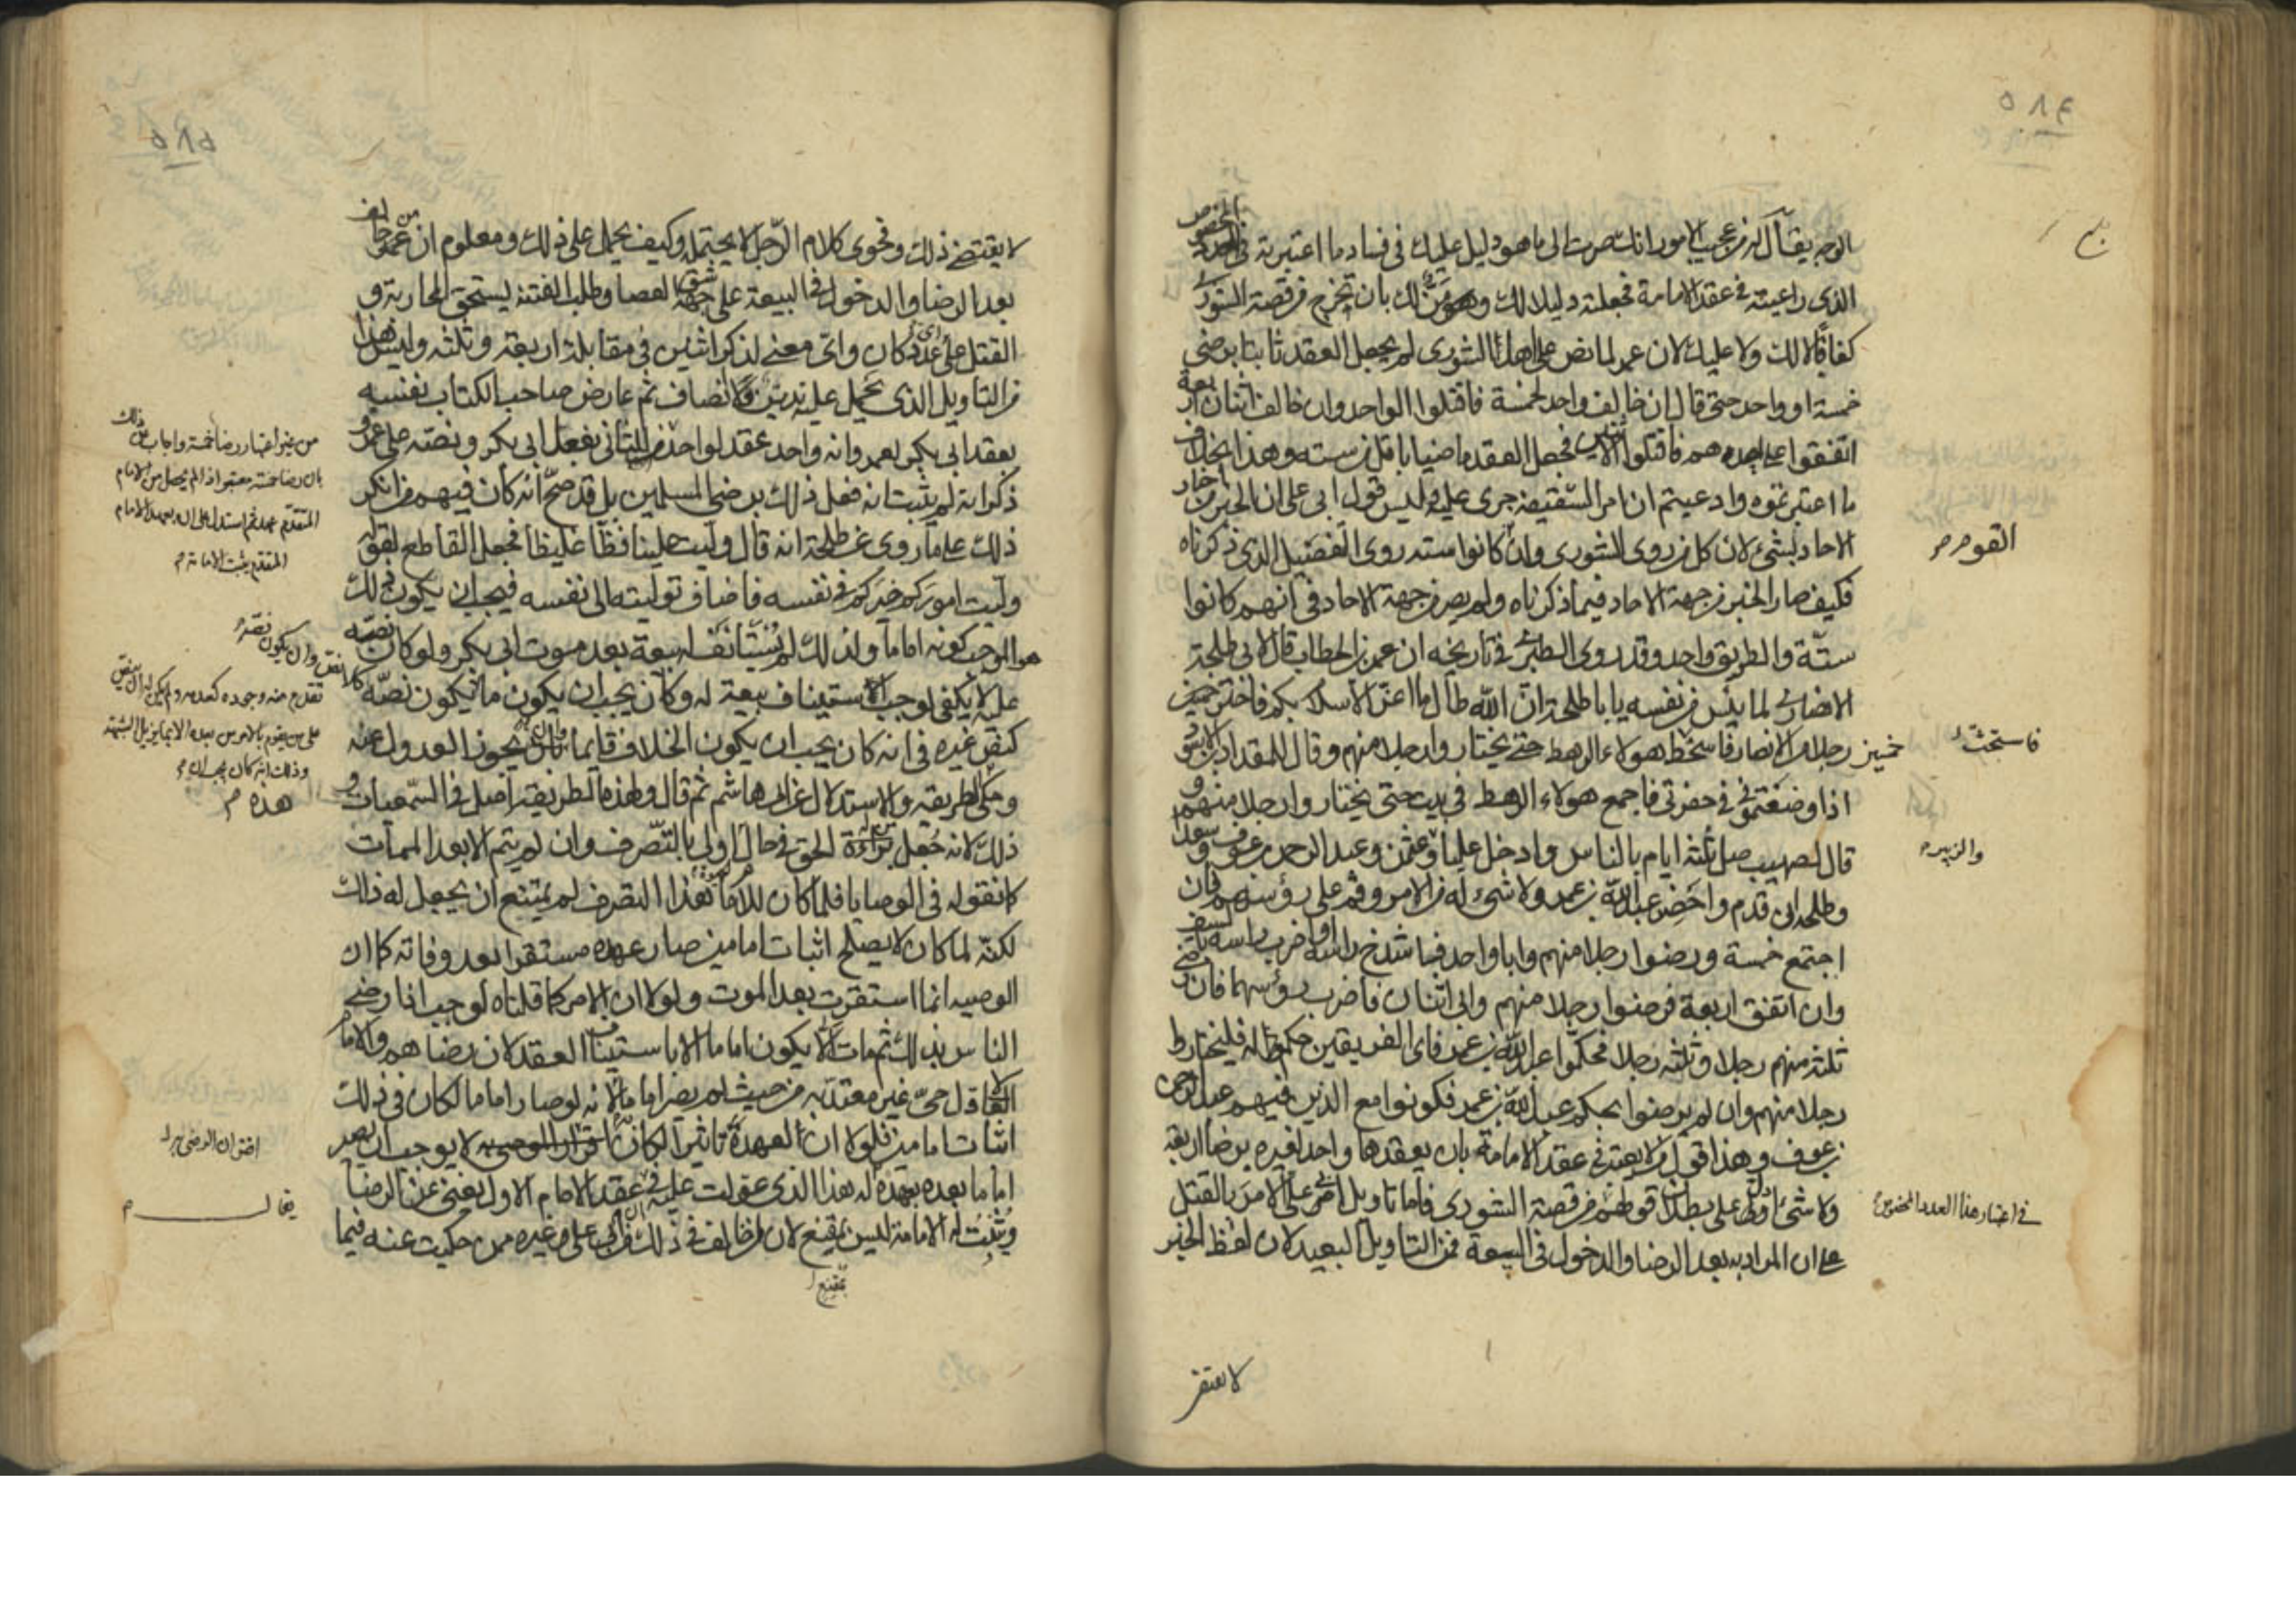 ٥٨٤
الوجه يقال له من عجب الامور انك صرت الى ما هو دليل عليك في فساد ما اعتبرته في العدد المخصوص
الذي راعيته في عقد الامامة فجعلته دليلا لك بان تخرج من قصة الشورى
كفافا لا لك ولا عليك لان عمر لما نص على اهل الشورى لم يجعل العقد ثابتا برضى
خمسة او واحد حتى قال ان خالف واحد لخمسة فاقتلوا الواحد وان خالف اثنان اربعة
اتفقوا على احدهم فاقتلوا الاثنين فجعل العقد ماضيا باقل من ستة وهذا بخلاف
ما اعتبرتموه وادعيتم ان امر السقيفة جرى عليه وليس قول ابي علي ان الخبر من اخبار
الاحاد بشيء لان كل من روى الشورى وان كانوا ستة روى التفصيل الذي ذكرناه
فكيف صار الخبر من جهة الاحاد فيما ذكرناه ولم يصر من جهة الاحاد في انهم كانوا
ستة والطريق واحد وقد روى الطبري في تاريخه ان عمر بن الخطاب قال لابي طلحة
الانصاري لما يئس من نفسه يا با طلحة ان الله طال ما اعز الاسلام بكم فاختر خمسين
رجلا من الانصار فاستحث هولاء الرهط حتى يختاروا رجلا منهم وقال للمقداد بن الاسود
اذا وضعتموني في حفرتي فاجمع هولاء الرهط في بيت حتى يختاروا رجلا منهم و
قال لصهيب صل ثلثة ايام بالناس وادخل عليا وعثمن وعبد الرحمن بن عوف وسعدا
وطلحة ان قدم واحضر عبد الله بن عمر ولا شيء له من الامر وقم على رؤسهم فان
اجتمع خمسة ورضوا رجلا منهم وابا واحد فاشدخ راسه او اضرب راسه بالسيف
وان اتفق اربعة فرضوا رجلا منهم وابى اثنان فاضرب رؤسهما فان رضي
ثلثة منهم رجلا وثلثة رجلا فحكموا عبد الله بن عمر فاى الفريقين حكم له فليختاروا
رجلا منهم وان لم يرضوا بحكم عبد الله بن عمر فكونوا مع الذين فيهم عبد الرحمن
بن عوف وهذا قول من لا يعتد في عقد الامامة بان يعقدها واحد لغيره برضا اربعة
ولا شيء ادل على بطلان قولهم من قصة الشورى فاما تاويل ابي علي الامر بالقتل
على ان المراد به بعد الرضا والدخول في البيعة فمن التاويل البعيد لان لفظ الخبر
القوم
فاستحث
خمسين
والزبير
في اعتبار هذا العدد المخصوص
٥٨٥
لا يقتضي ذلك وفحوى كلام الرجل لا يحتمله وكيف يحمل على ذلك ومعلوم ان من خالف
بعد الرضا والدخول في البيعة على جهة شق العصا وطلب الفتنة يستحق المحاربة و
القتل على اي عدد كان واي معنى لذكر اثنين في مقابلة اربعة وثلثة وليس هذا
من التاويل الذي يحمل عليه تدين وانصاف ثم عارض صاحب الكتاب نفسه
بعقد ابي بكر لعمر وانه واحد عقد لواحد بفعل ابي بكر ونصه على عمر و
ذكر انه لم يثبت انه فعل ذلك برضى المسلمين بل قد صح انه كان فيهم من انكر
ذلك على ما روي عن طلحة انه قال وليت علينا فظا غليظا فجعل القاطع لقوله
وليت اموركم خيركم في نفسه فاضاف توليته الى نفسه فيجب ان يكون ذلك
هو الموجب كونه اماما ولذلك لم يستأنف له بيعة بعد موت ابي بكر ولو كان نصه
عليه لا يكفي لوجب الاستيناف بيعة له وكان يجب ان يكون نصه
كنص غيره في انه كان يجب ان يكون الخلاف قايما وان يجوز العدول عنه
وحكى الطريقة والاستدلال عن ابي هاشم ثم قال وهذه الطريقة اصل في السمعيات و
ذلك لانه جعل الحق في حال اولى بالتصرف وان لم يتم الا بعد الممات
كما نقوله في الوصايا فلما كان للامام هذا التصرف لم يمتنع ان يجعل له ذلك
لكنه لما كان لا يصلح اثبات امامين صار عهده مستقرا بعد وفاته كما ان
الوصية انما استقرت بعد الموت ولولا ان الامر كما قلناه لوجب اذا رضي
الناس بذلك ثم مات الا يكون اماما الا باستيناف العقد لان رضاهم والامام
الاول حي غير معتد به من حيث لم يصر اماما لانه لو صار اماما لكان في ذلك
اثبات امامين فلولا ان للعهدة تاثيرا لكان لا يوجب ان يصير
اماما بعده بعهده له هذا الذي عولت عليه في عقد الامام الاول يغني عن الرضا
ويثبت له الامامة ليس بمقنع لان من خالف في ذلك من ابي علي وغيره ممن حكيت عنه فيما
بمقنع
من غير اعتبار رضا خمسة واجاب عن ذلك
بان رضا خمسة معتبر اذا لم يحصل من الامام
المتقدم عهد ثم استدل على ان بعهد الامام
المتقدم يثبت الامامة
وان يكون نصه
تقدم منه وجوده كعدمه
على من يقوم بالامر من بعده الا بما يزيل الشبهة
وذلك انه كان يجب ان
هذه
اقتران الرضى به
يقال